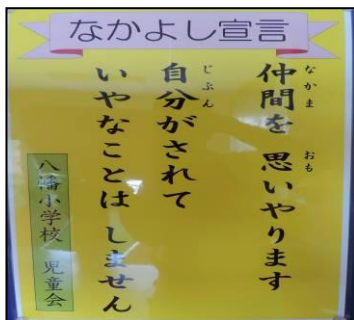 なかよし宣言
仲間を 思いやります
自分がされて
いやなことは しません
八幡小学校 児童会